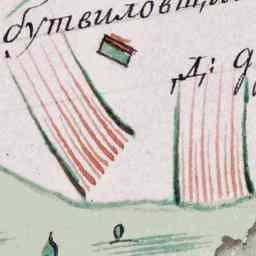 бутвиловщи
д: